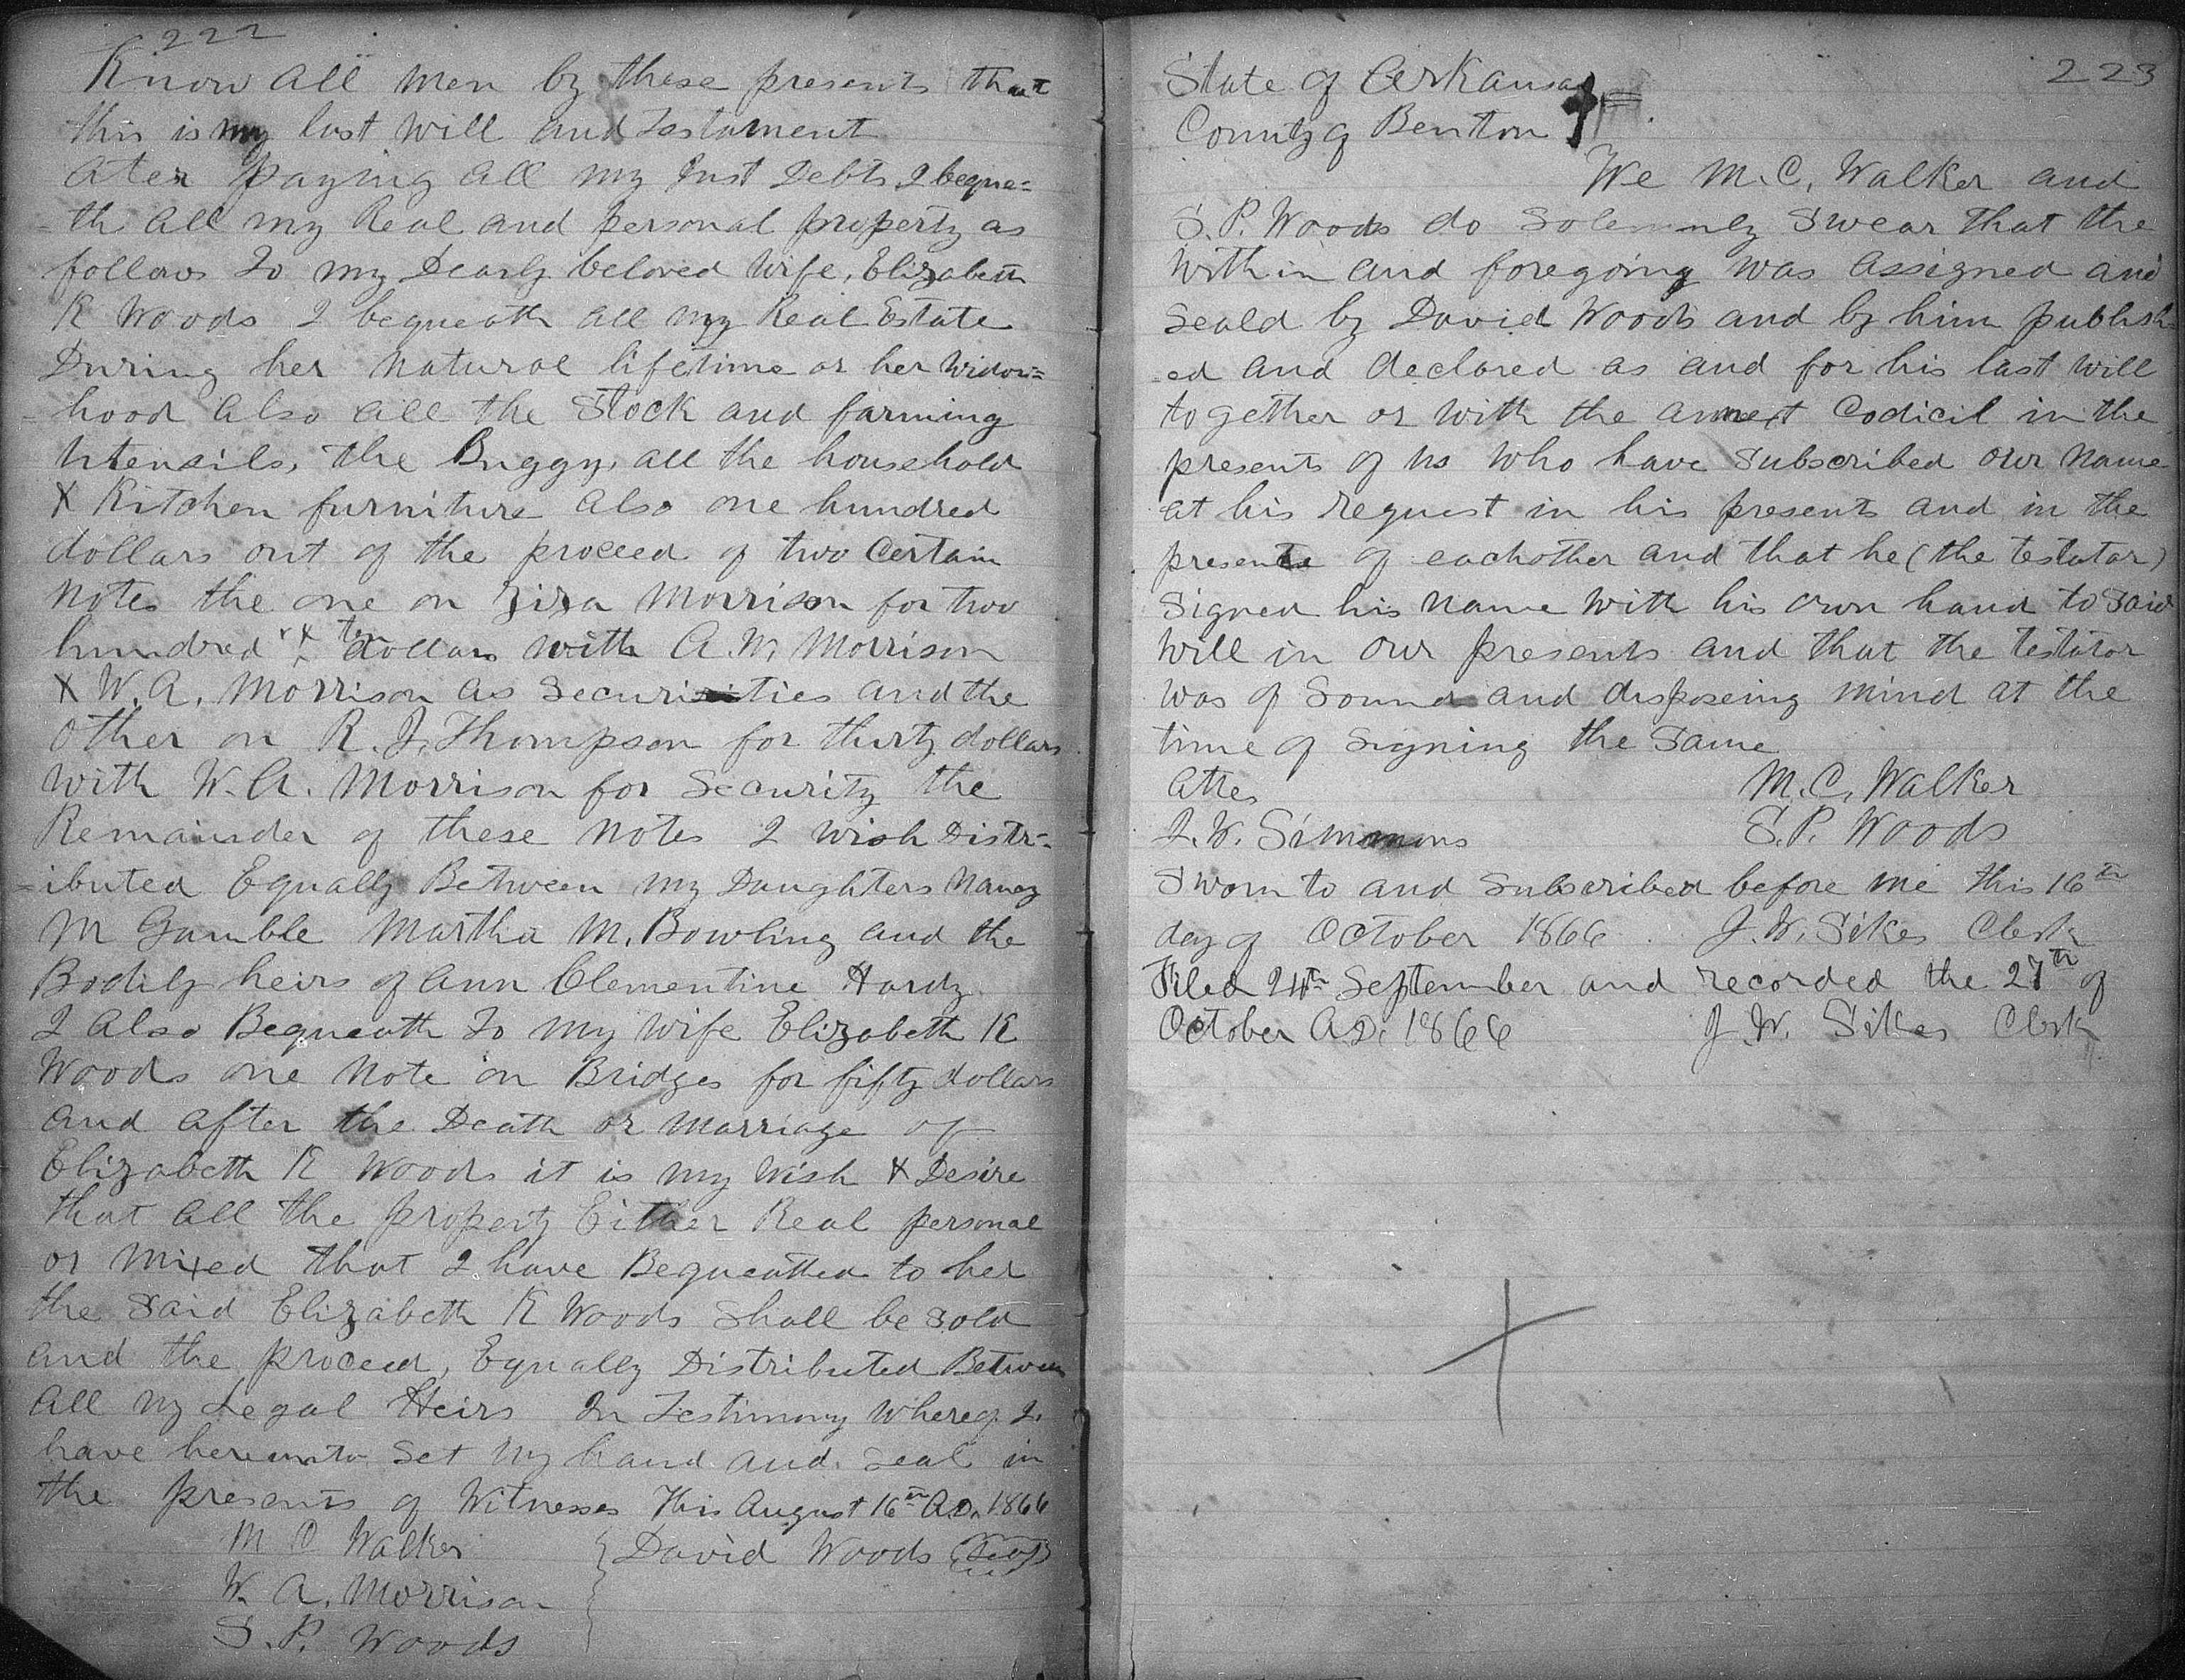 222
Know all men by these presents that
this is my last will and Testament
ater paying all my Just Debts I beque=
=th all my Real and personal property as
follows To my Dearly beloved wife, Elizabeth
K Woods I bequeath all my Real Estate
During her natural lifetime or her widow=
=hood also all the Stock and farming
Utensils, the Buggy, all the household
& Kitchen furniture also one hundred
dollars out of the proceed of two Certain
notes the one on Morrison for two
hundred & ten dollars with A. W. Morrison
& W. A. Morrison as Securities and the
other on R. J. Thompson for thirty dollars
with W. A. Morrison for Security the
Remainder of these notes I wish Distr=
=ibuted Equally Between my Daughters Nancy
M Gamble Martha M. Bowling and the
Bodily heirs of Ann Clementine Hardy
I also Bequeath To my wife Elizabeth K
Woods one note on Bridges for fifty dollars
and after the Death or marriage of
Elizabeth K Woods it is my wish & Desire
that all the property Either Real personal
or mixed that I have Bequeathed to her
the said Elizabeth K Woods shall be sold
and the proceed, Equally Distributed Between
all my Legal Heirs In Testimony whereof I
have hereunto set my hand and seal in
the presents of Witnesses This August 16th A.D. 1866
M C Walker } David Woods (Seal)
W. A. Morrison
S. P. Woods
223
State of Arkansas
County of Benton
We M. C. Walker and
S. P. Woods do solemnly swear that the
within and foregoing was assigned and
seald by David Woods and by him publish
=ed and declared as and for his last will
together or with the annext Codicil in the
presents of us who have subscribed our name
at his request in his presents and in the
presents of eachother and that he (the testator)
signed his name with his own hand to said
will in our presents and that the testator
was of sound and disposeing mind at the
time of signing the same
Attes M. C. Walker
J. W. Simmons S. P. Woods
Sworn to and subscribed before me this 16th
day of October 1866. J. W. Sikes Clerk
Filed 24th September and recorded the 27th of
October A.D. 1866 J. W. Sikes Clerk